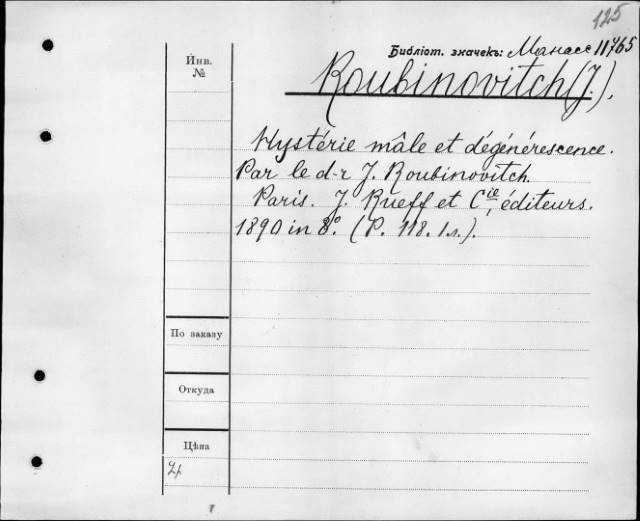 125
Библіот. значекъ: Манасс 11765
Инв.
№
Roubinovitch (J.),
Hystérie mâle et dégénérescence.
Par le d-r J. Roubinovitch.
Paris. J. Rueff et Cie, éditeurs.
1890 in 8°. (P. 118. 1 л.).
По заказу
Откуда
Цѣна